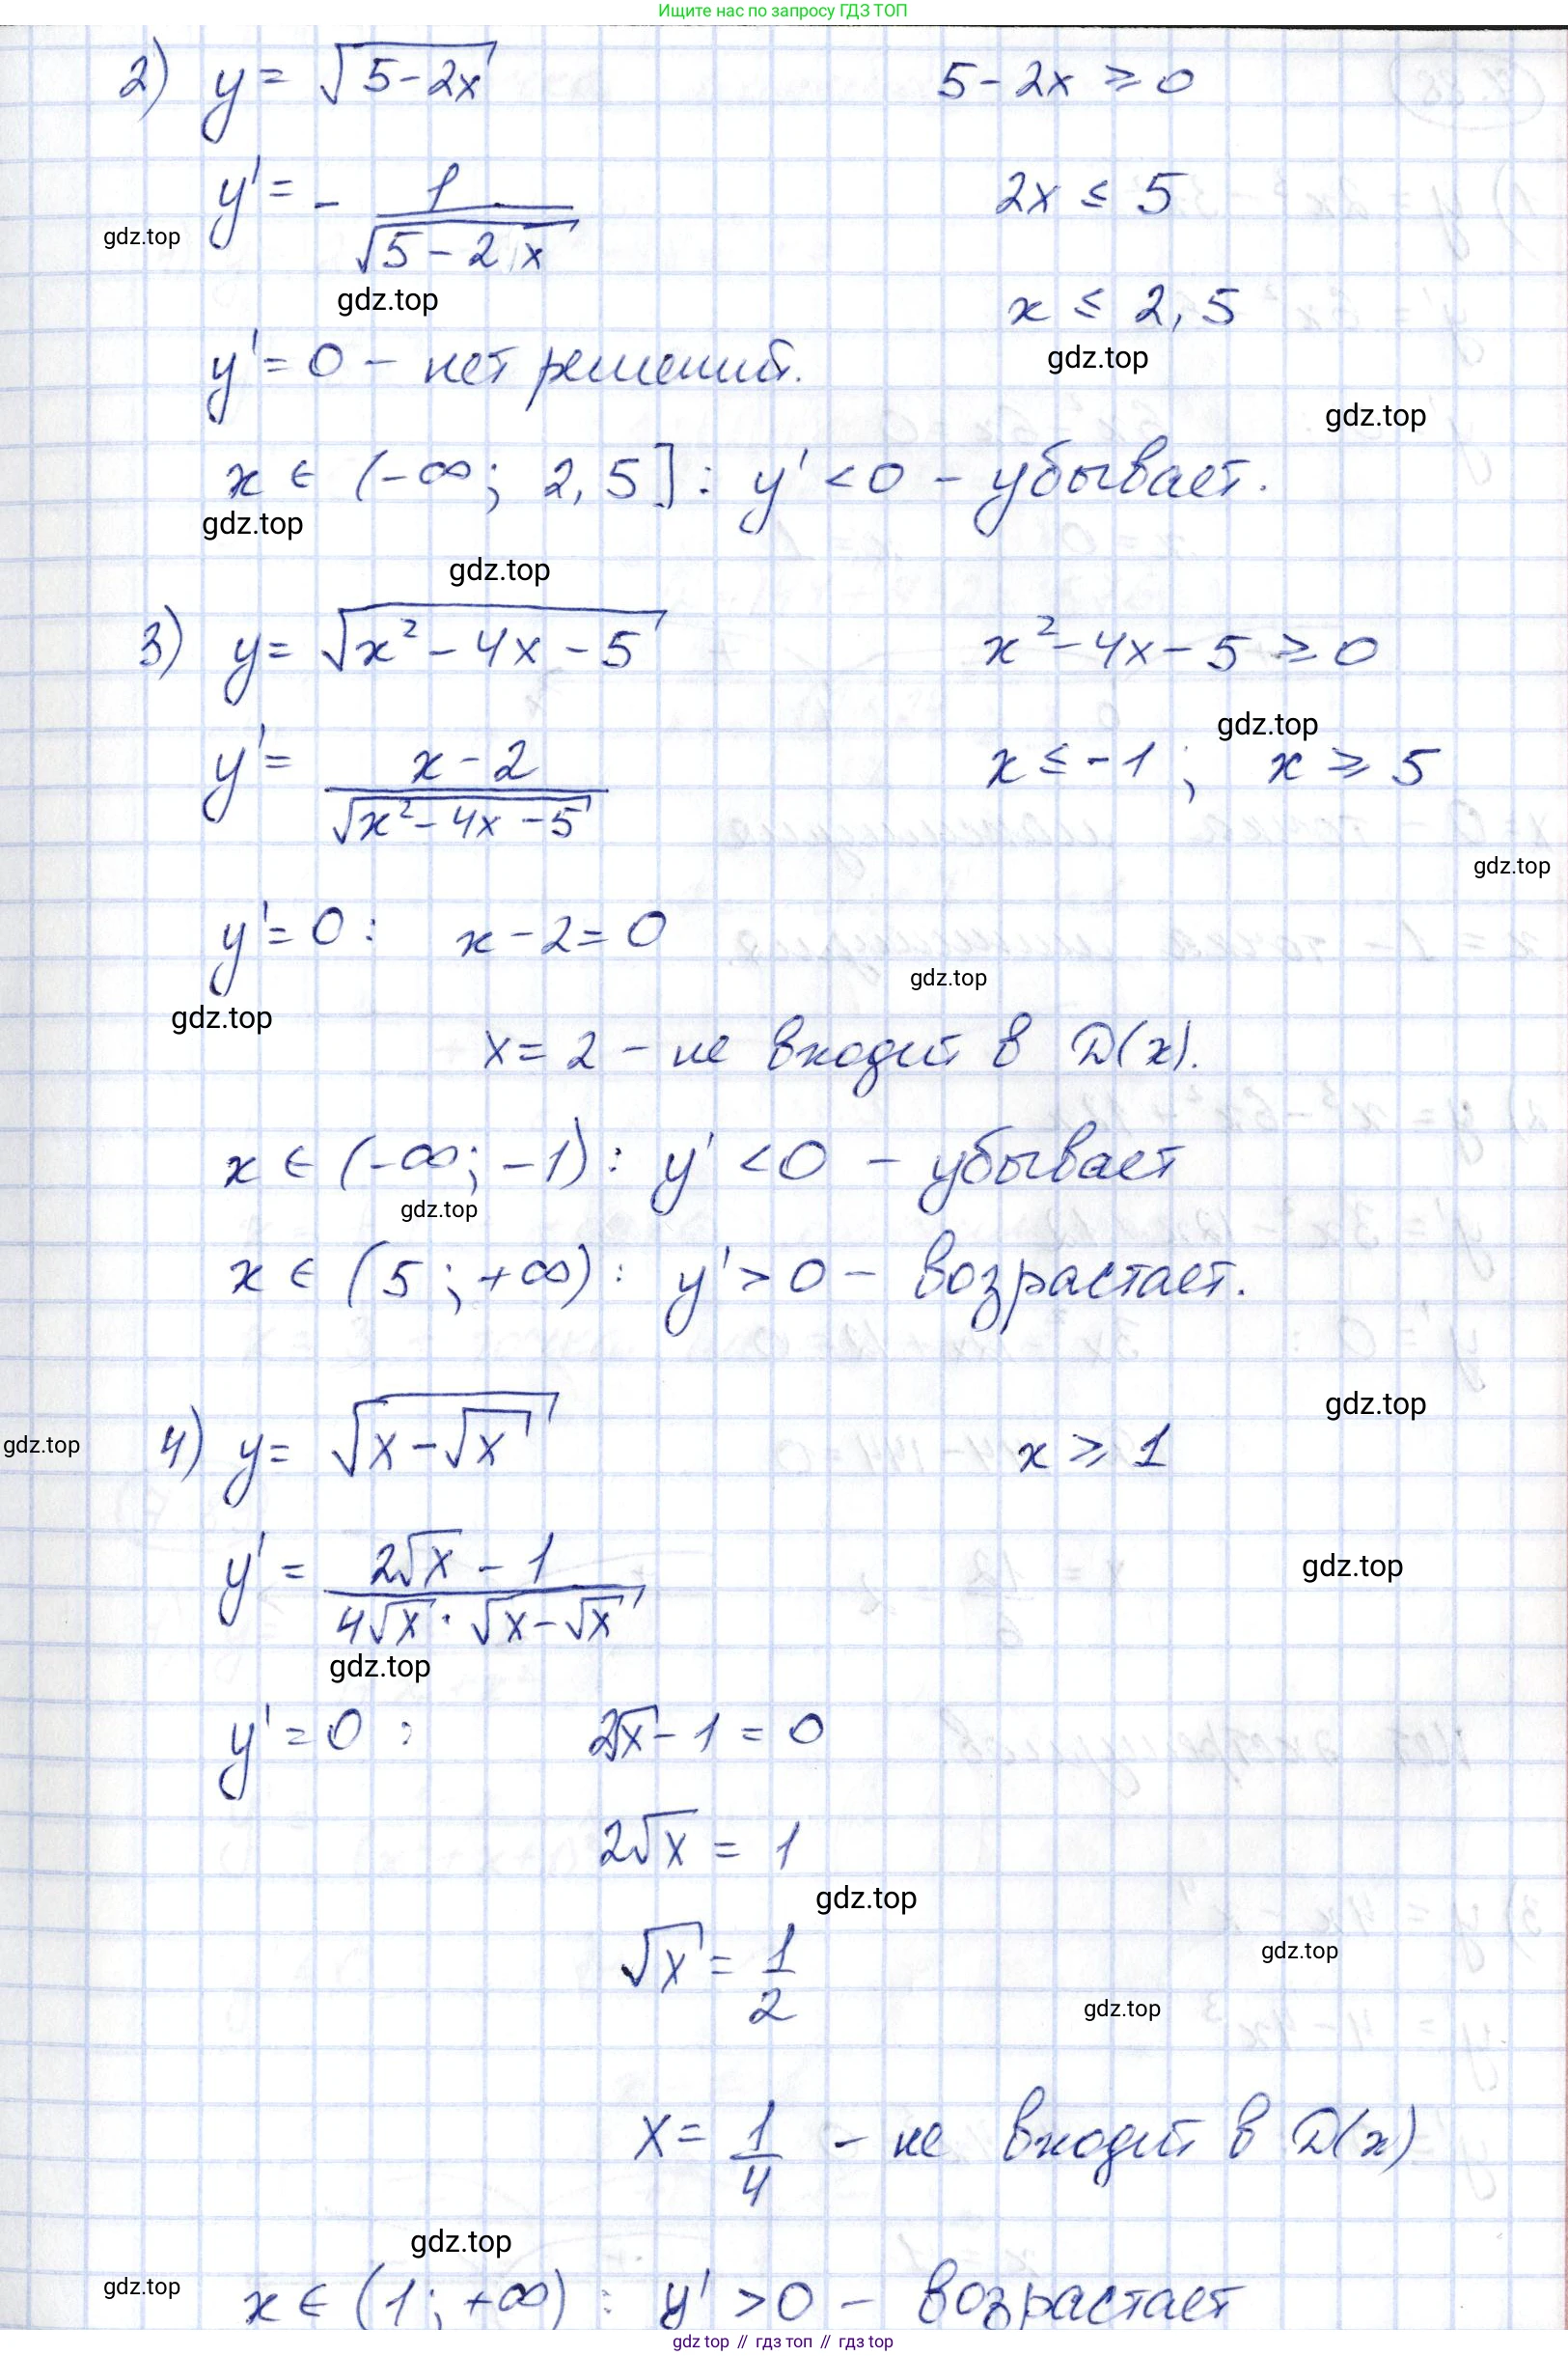 Ищите нас по запросу ГДЗ ТОП
2) y = √(5-2x)    5-2x ≥ 0
y' = - 1/√(5-2x)    2x ≤ 5
gdz.top
gdz.top    x ≤ 2,5
y' = 0 - нет решений.    gdz.top
gdz.top
x ∈ (-∞; 2,5]: y' < 0 - убывает.
gdz.top
gdz.top
3) y = √(x²-4x-5)    x²-4x-5 ≥ 0
gdz.top
y' = (x-2)/√(x²-4x-5)    x ≤ -1; x ≥ 5
gdz.top
y' = 0: x-2=0
gdz.top
gdz.top
x = 2 - не входит в D(x).
x ∈ (-∞; -1): y' < 0 - убывает
gdz.top
x ∈ (5; +∞): y' > 0 - возрастает.
gdz.top
gdz.top
4) y = √(x-√x)    x ≥ 1
y' = (2√x - 1)/(4√x · √(x-√x))
gdz.top
gdz.top
y' = 0: 2√x - 1 = 0
2√x = 1
gdz.top
√x = 1/2
gdz.top
gdz.top
x = 1/4 - не входит в D(x)
gdz.top
gdz.top
x ∈ (1; +∞): y' > 0 - возрастает
gdz top // гдз топ // гдз top